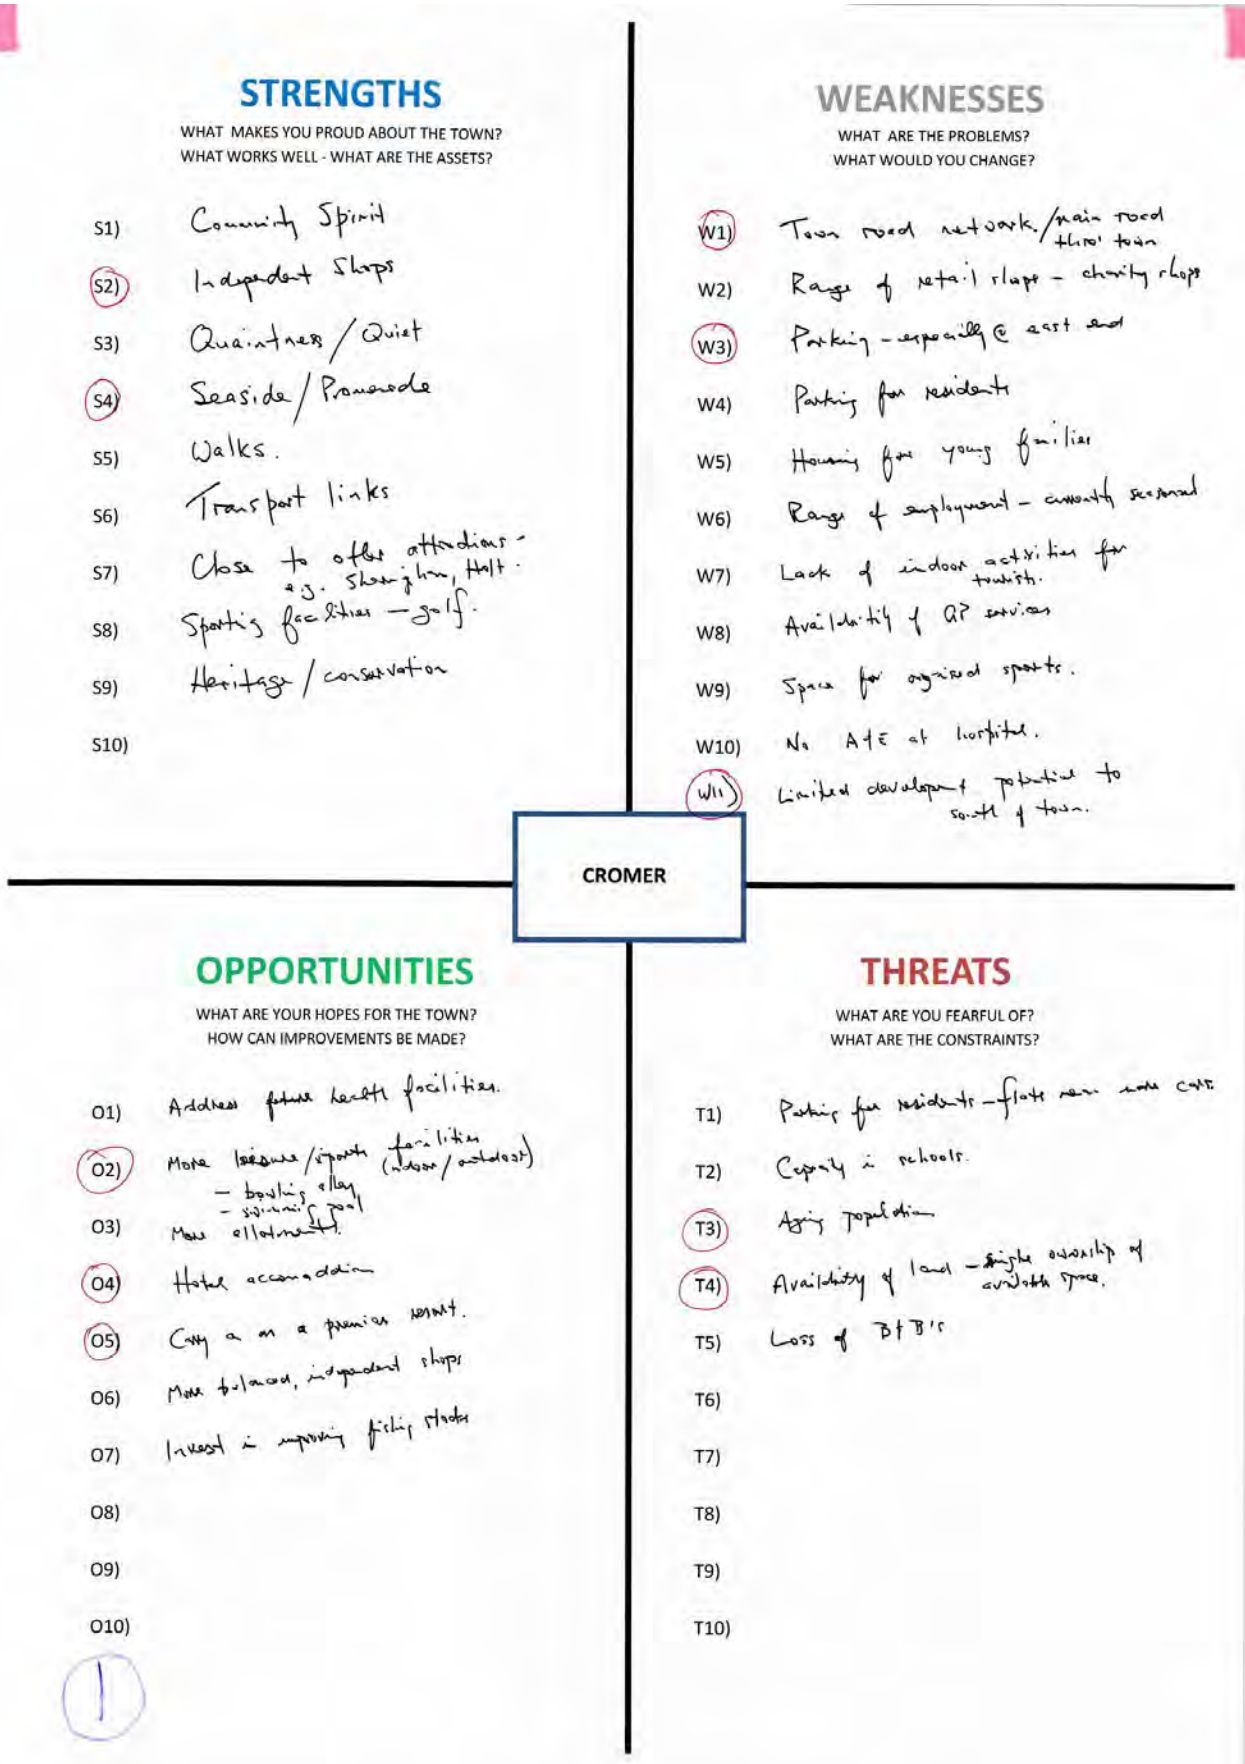 STRENGTHS
WHAT MAKES YOU PROUD ABOUT THE TOWN?
WHAT WORKS WELL - WHAT ARE THE ASSETS?
S1) Community Spirit
S2) Independent Shops
S3) Quaintness / Quiet
S4) Seaside / Promenade
S5) Walks.
S6) Transport links
S7) Close to other attractions -
e.g. Sheringham, Holt.
S8) Sporting facilities - golf.
S9) Heritage / conservation
S10)
WEAKNESSES
WHAT ARE THE PROBLEMS?
WHAT WOULD YOU CHANGE?
W1) Town road network / main road
thro' town
W2) Range of retail shops - charity shops
W3) Parking - especially @ east end
W4) Parking for residents
W5) Housing for young families
W6) Range of employment - currently seasonal
W7) Lack of indoor activities for
tourists.
W8) Availability of GP services
W9) Space for organised sports.
W10) No A+E at hospital.
W11) Limited development potential to
south of town.
CROMER
OPPORTUNITIES
WHAT ARE YOUR HOPES FOR THE TOWN?
HOW CAN IMPROVEMENTS BE MADE?
O1) Address future health facilities.
O2) More leisure / sports facilities
(indoor / outdoor)
- bowling alley
- swimming pool
O3) More allotments.
O4) Hotel accomodation
O5) Carry on as a premier resort.
O6) More balanced, independent shops
O7) Invest in improving fishing stocks
O8)
O9)
O10)
1
THREATS
WHAT ARE YOU FEARFUL OF?
WHAT ARE THE CONSTRAINTS?
T1) Parking for residents - flats mean more cars.
T2) Capacity in schools.
T3) Aging population
T4) Availability of land - single ownership of
available space.
T5) Loss of B+B's
T6)
T7)
T8)
T9)
T10)